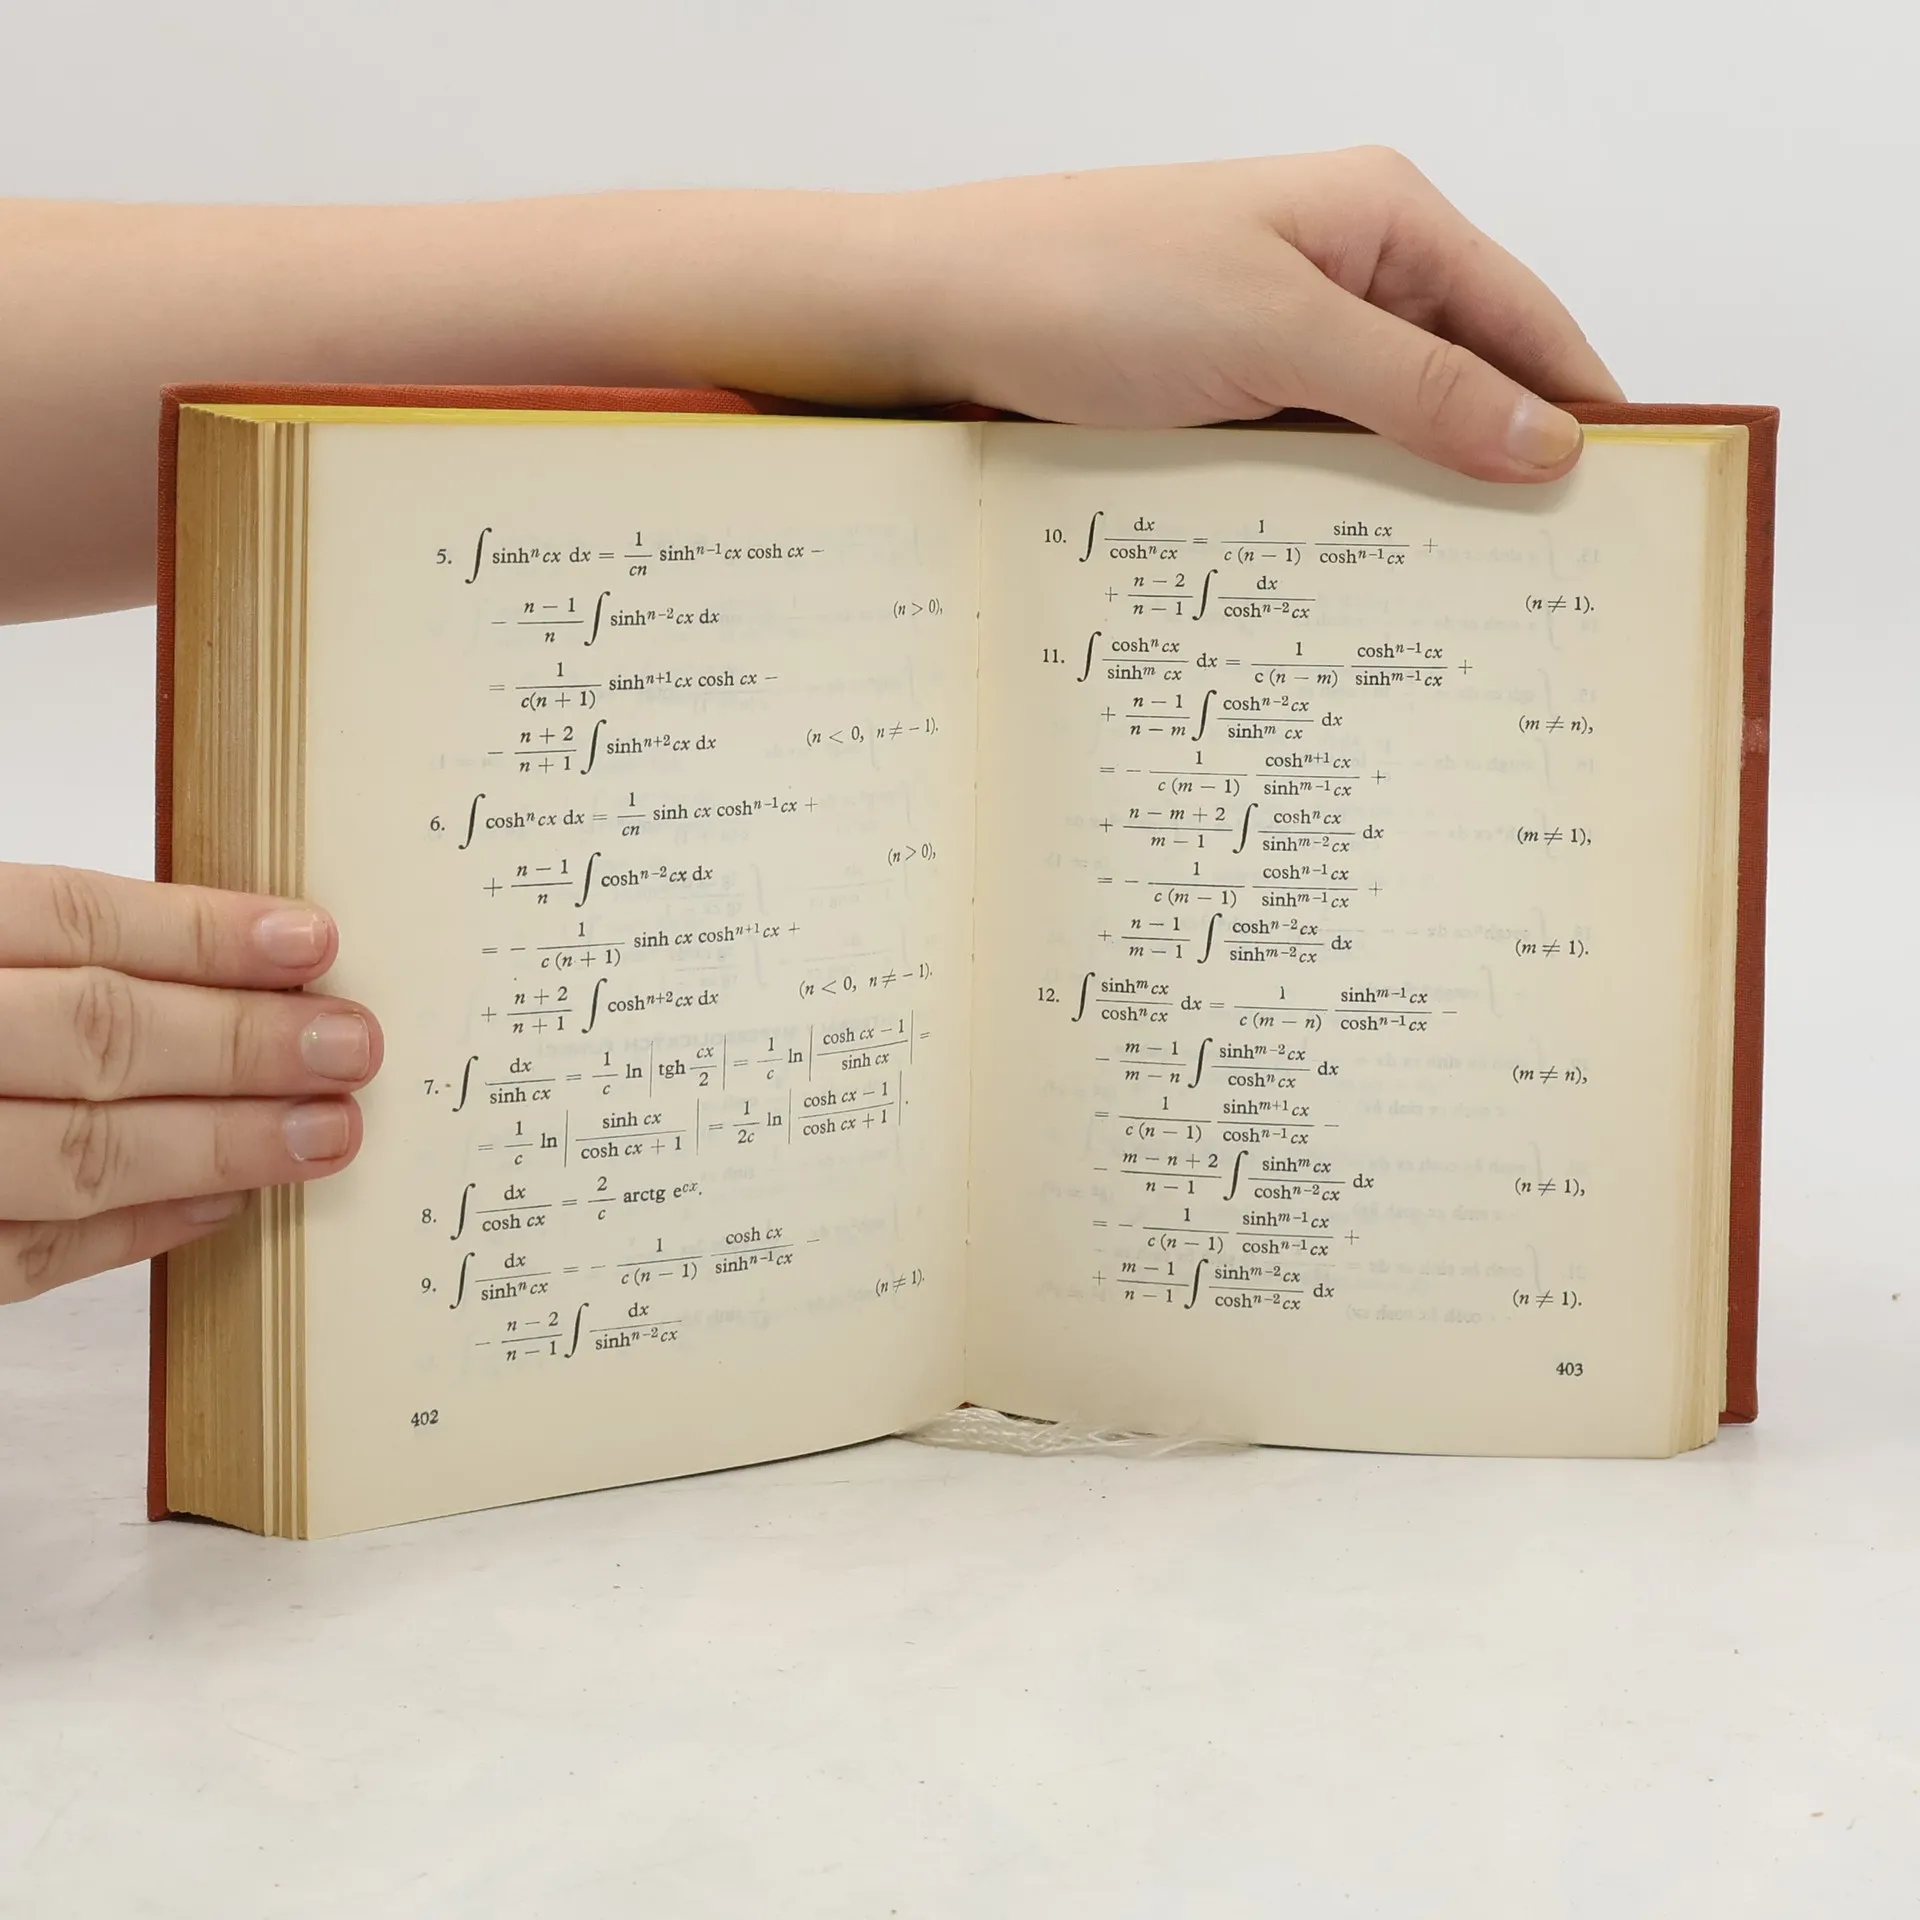 5. ∫ sinhⁿ cx dx = 1/(cn) sinhⁿ⁻¹ cx cosh cx −
− (n − 1)/n ∫ sinhⁿ⁻² cx dx (n > 0),
= 1/(c(n + 1)) sinhⁿ⁺¹ cx cosh cx −
− (n + 2)/(n + 1) ∫ sinhⁿ⁺² cx dx (n < 0, n ≠ − 1).
6. ∫ coshⁿ cx dx = 1/(cn) sinh cx coshⁿ⁻¹ cx +
+ (n − 1)/n ∫ coshⁿ⁻² cx dx (n > 0),
= − 1/(c (n + 1)) sinh cx coshⁿ⁺¹ cx +
+ (n + 2)/(n + 1) ∫ coshⁿ⁺² cx dx (n < 0, n ≠ − 1).
7. ∫ dx/(sinh cx) = 1/c ln |tgh cx/2| = 1/c ln |(cosh cx − 1)/(sinh cx)| =
= 1/c ln |(sinh cx)/(cosh cx + 1)| = 1/(2c) ln |(cosh cx − 1)/(cosh cx + 1)|.
8. ∫ dx/(cosh cx) = 2/c arctg eᶜˣ.
9. ∫ dx/(sinhⁿ cx) = − 1/(c (n − 1)) (cosh cx)/(sinhⁿ⁻¹ cx) −
− (n − 2)/(n − 1) ∫ dx/(sinhⁿ⁻² cx) (n ≠ 1).
402
10. ∫ dx/(coshⁿ cx) = 1/(c (n − 1)) (sinh cx)/(coshⁿ⁻¹ cx) +
+ (n − 2)/(n − 1) ∫ dx/(coshⁿ⁻² cx) (n ≠ 1).
11. ∫ (coshⁿ cx)/(sinhᵐ cx) dx = 1/(c (n − m)) (coshⁿ⁻¹ cx)/(sinhᵐ⁻¹ cx) +
+ (n − 1)/(n − m) ∫ (coshⁿ⁻² cx)/(sinhᵐ cx) dx (m ≠ n),
= − 1/(c (m − 1)) (coshⁿ⁺¹ cx)/(sinhᵐ⁻¹ cx) +
+ (n − m + 2)/(m − 1) ∫ (coshⁿ cx)/(sinhᵐ⁻² cx) dx (m ≠ 1),
= − 1/(c (m − 1)) (coshⁿ⁻¹ cx)/(sinhᵐ⁻¹ cx) +
+ (n − 1)/(m − 1) ∫ (coshⁿ⁻² cx)/(sinhᵐ⁻² cx) dx (m ≠ 1).
12. ∫ (sinhᵐ cx)/(coshⁿ cx) dx = 1/(c (m − n)) (sinhᵐ⁻¹ cx)/(coshⁿ⁻¹ cx) −
− (m − 1)/(m − n) ∫ (sinhᵐ⁻² cx)/(coshⁿ cx) dx (m ≠ n),
= 1/(c (n − 1)) (sinhᵐ⁺¹ cx)/(coshⁿ⁻¹ cx) −
− (m − n + 2)/(n − 1) ∫ (sinhᵐ cx)/(coshⁿ⁻² cx) dx (n ≠ 1),
= − 1/(c (n − 1)) (sinhᵐ⁻¹ cx)/(coshⁿ⁻¹ cx) +
+ (m − 1)/(n − 1) ∫ (sinhᵐ⁻² cx)/(coshⁿ⁻² cx) dx (n ≠ 1).
403